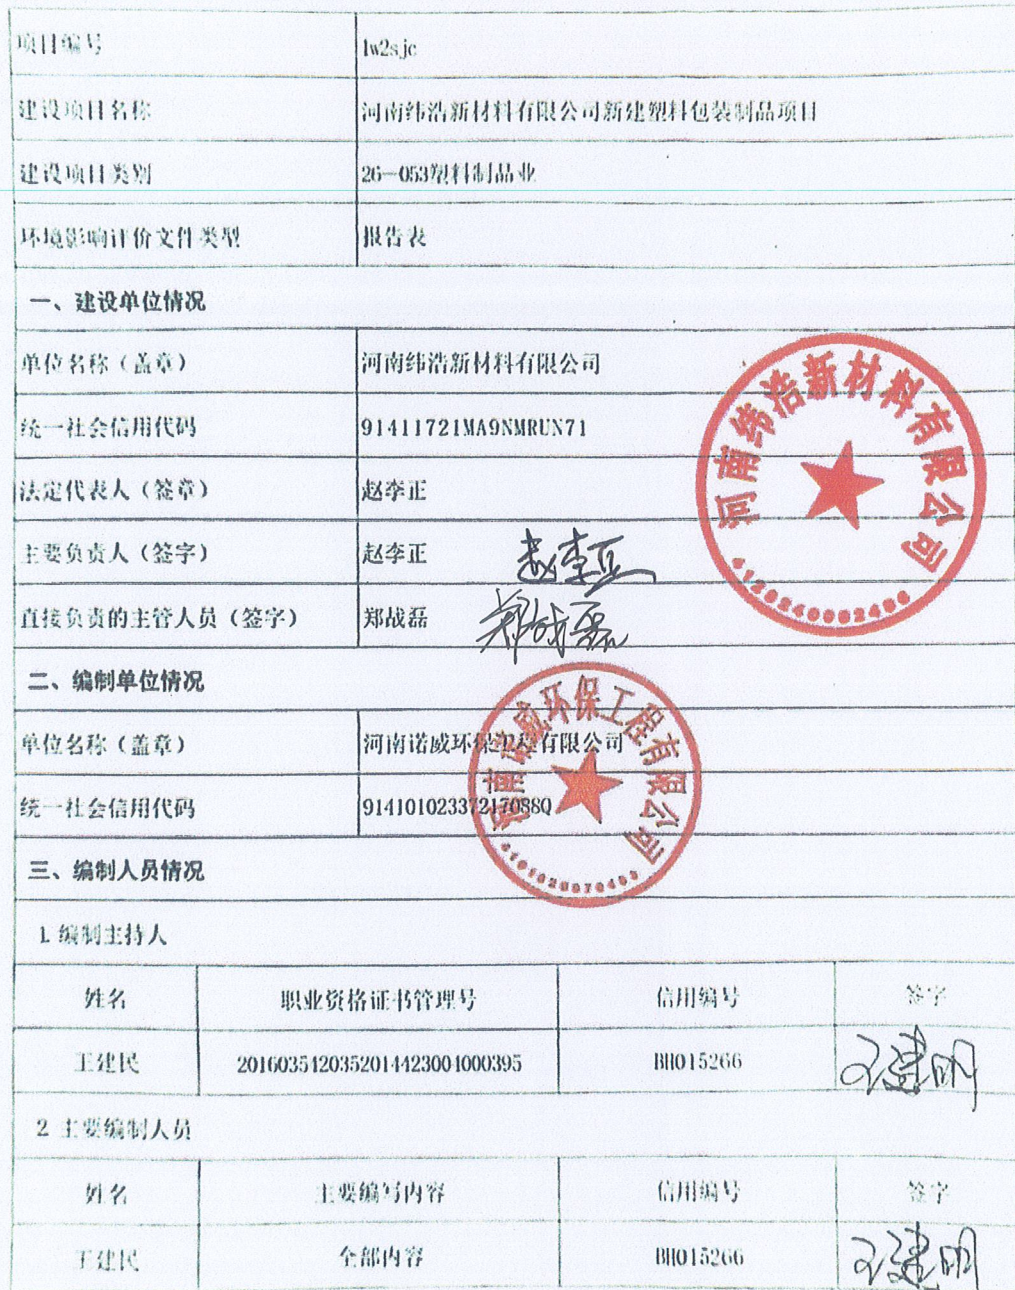 项目编号 1w2sjc
建设项目名称 河南纬浩新材料有限公司新建塑料包装制品项目
建设项目类别 26—053塑料制品业
环境影响评价文件类型 报告表
一、建设单位情况
单位名称（盖章） 河南纬浩新材料有限公司
统一社会信用代码 91411721MA9NMRUN71
法定代表人（签章） 赵李正
主要负责人（签字） 赵李正 赵李正
直接负责的主管人员（签字） 郑战磊 郑战磊
河南纬浩新材料有限公司
二、编制单位情况
单位名称（盖章） 河南诺威环保工程有限公司
统一社会信用代码 91410102337217088Q
河南诺威环保工程有限公司
三、编制人员情况
1. 编制主持人
姓名 职业资格证书管理号 信用编号 签字
王建民 2016035420352014423004000395 BH015266 王建明
2 主要编制人员
姓名 主要编写内容 信用编号 签字
王建民 全部内容 BH015266 王建明